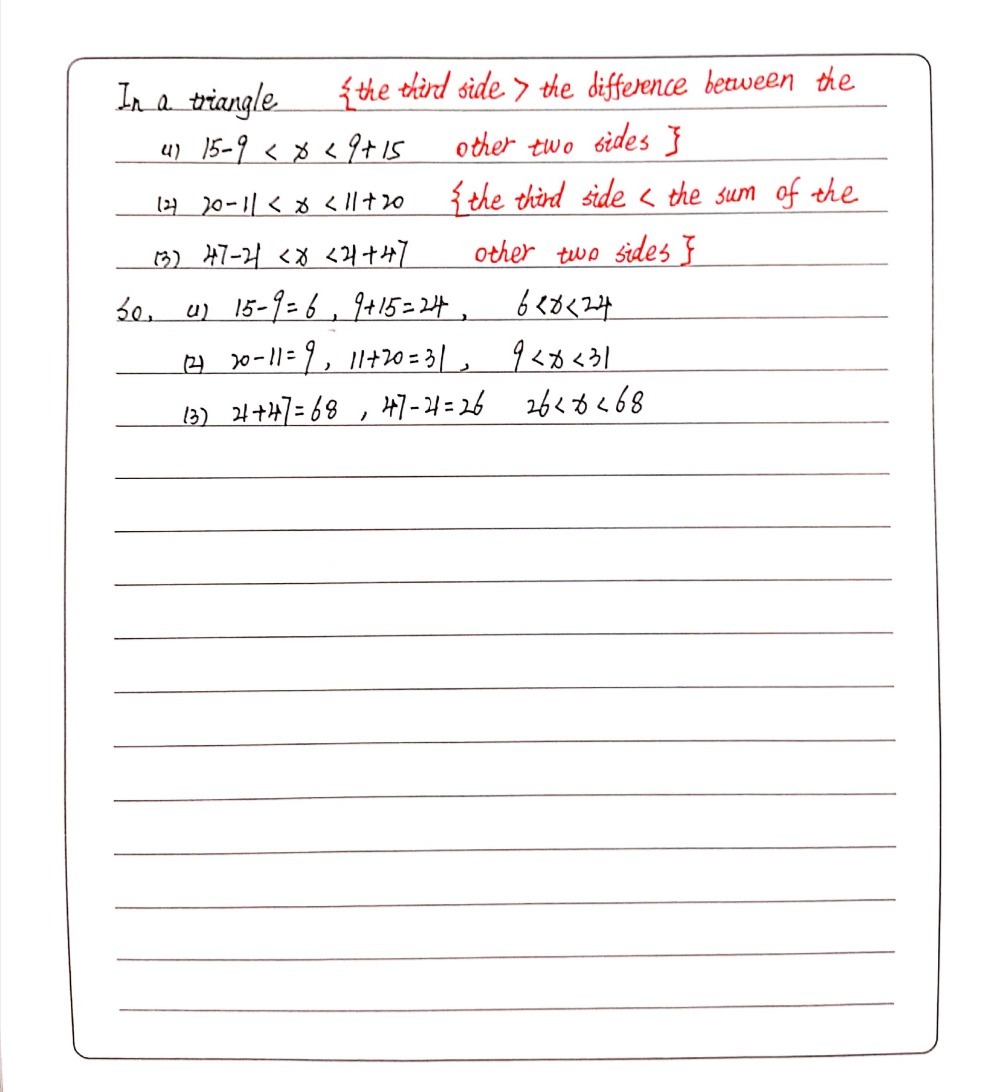 In a triangle {the third side > the difference between the
(1) 15-9 < x < 9+15 other two sides }
(2) 20-11 < x < 11+20 {the third side < the sum of the
(3) 47-21 < x < 21+47 other two sides }
So, (1) 15-9=6, 9+15=24, 6<x<24
(2) 20-11=9, 11+20=31, 9<x<31
(3) 21+47=68, 47-21=26 26<x<68